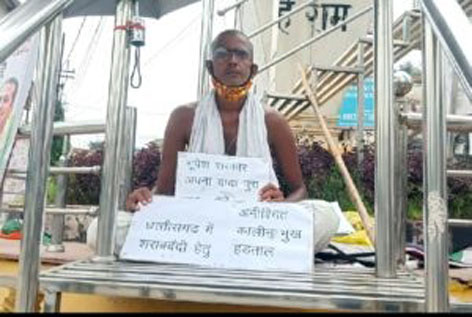 हे राम
भूपेश सरकार
अपना वादा पुरा
छत्तीसगढ में
शराबबंदी हेतु
अनिश्चित
कालीन भुख
हडताल